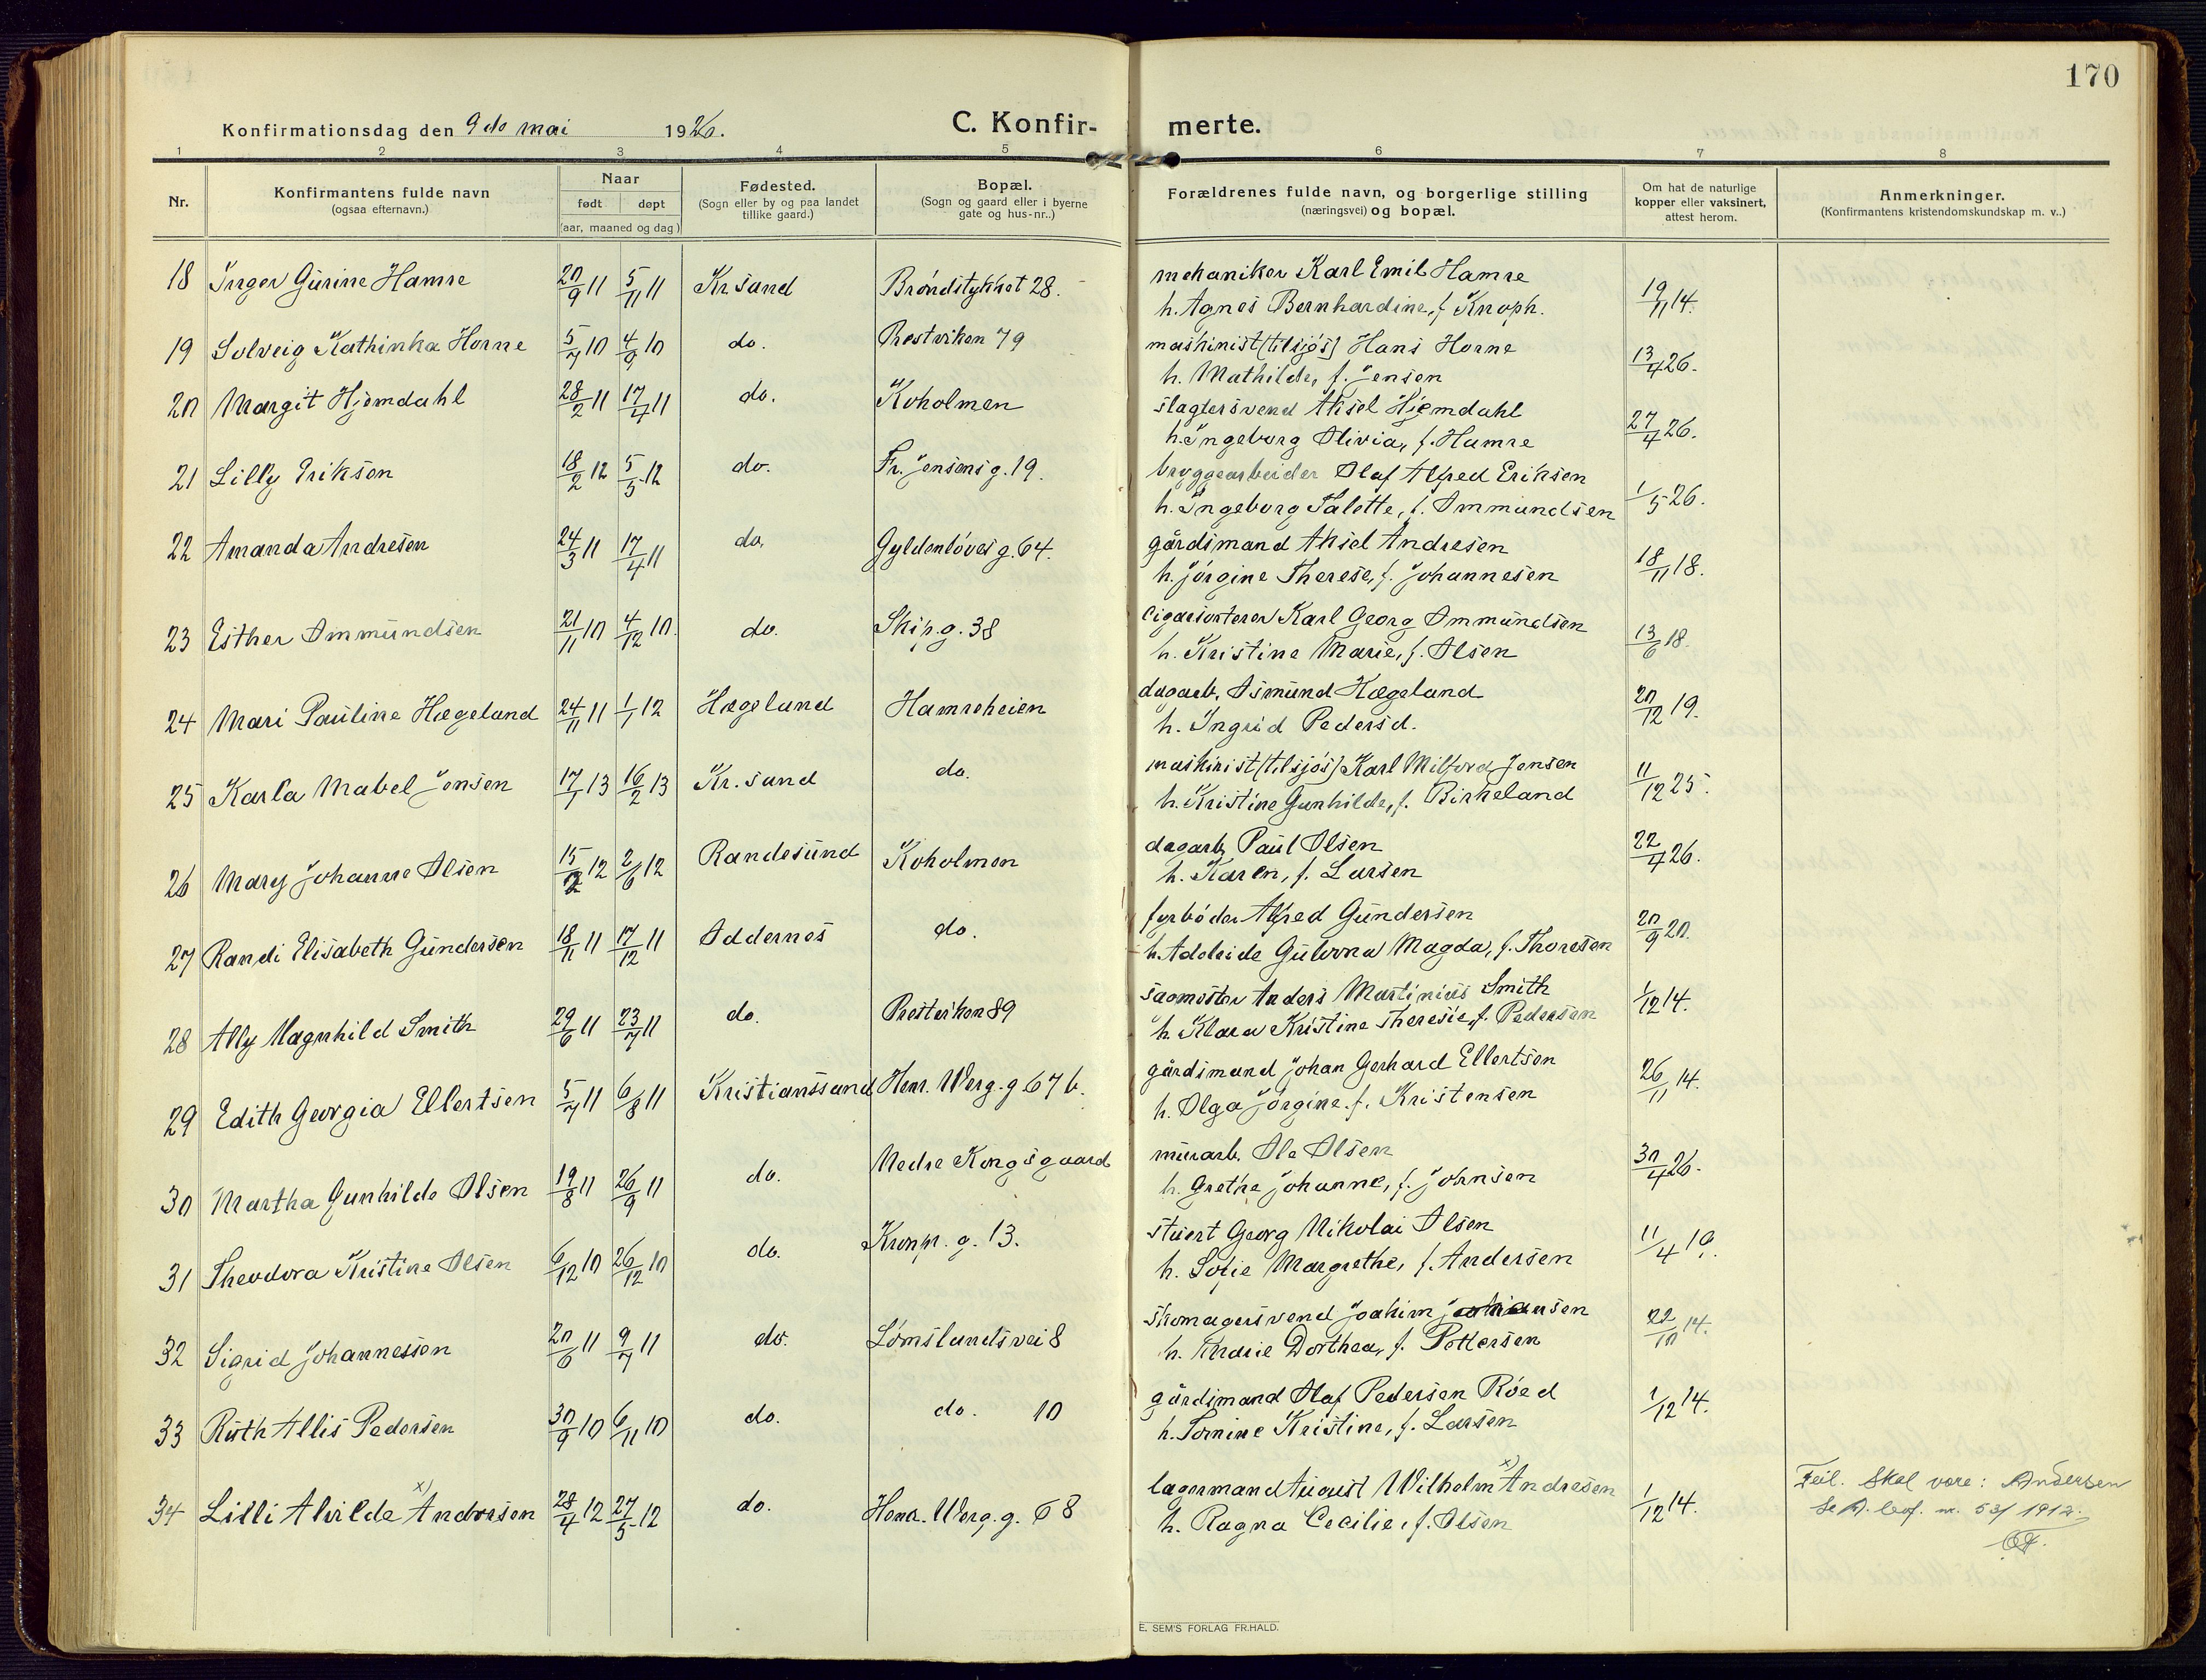 170
Konfirmationsdag den 9de mai 1926.
C. Konfir-merte.
1 2 3 4 5 6 7 8
Nr.
Konfirmantens fulde navn
(ogsaa efternavn.)
Naar
født døpt
(aar, maaned og dag)
Fødested.
(Sogn eller by og paa landet
tillike gaard.)
Bopæl.
(Sogn og gaard eller i byerne
gate og hus-nr..)
Forældrenes fulde navn, og borgerlige stilling
(næringsvei) og bopæl.
Om hat de naturlige
kopper eller vaksinert,
attest herom.
Anmerkninger.
(Konfirmantens kristendomskundskap m. v..)
18 Inger Gurine Hamre 20/9 11 5/11 11 Kr sand Brøndstykket 28.
mekaniker Karl Emil Hamre
h. Agnes Bernhardine, f. Knoph. 19/11 14.
19 Solveig Kathinka Horne 5/7 10 4/9 10 do. Prestviken 79
maskinist (tilsjøs) Hans Horne
h. Mathilde, f. Jensen 13/4 26.
20 Margit Hjemdahl 28/2 11 17/4 11 do. Koholmen
slagtersvend Aksel Hjemdahl
h. Ingeborg Olivia, f. Hamre 27/4 26.
21 Lilly Eriksen 18/2 12 5/5 12 do. Fr. Jensens g. 19.
bryggearbeider Olaf Alfred Eriksen
h. Ingeborg Talette, f. Ommundsen 1/5 26.
22 Amanda Andresen 24/3 11 17/4 11 do. Gyldenløves g. 64.
gårdsmand Aksel Andresen
h. Jørgine Therese, f. Johannesen 18/11 18.
23 Esther Ommundsen 21/11 10 4/12 10. do. Skip. g. 38
cigarsorterer Karl Georg Ommundsen
h. Kristine Marie, f. Olsen 13/6 18.
24 Mari Pauline Hægeland 24/11 11 1/1 12 Hægeland Hamreheien
dagarb. Osmund Hægeland
h. Ingrid Pedersd. 20/12 19.
25 Karla Mabel Jensen 17/1 13 16/2 13 Kr. sand do.
maskinist (tilsjøs) Karl Milford Jensen
h. Kristine Gunhilde, f. Birkeland 11/12 25.
26 Mary Johanne Olsen 15/2 12 2/6 12 Randesund Koholmen
dagarb. Paul Olsen
h. Karen, f. Larsen 22/4 26.
27 Randi Elisabeth Gundersen 18/11 11 17/12 11 Oddernes do.
fyrbøder Alfred Gundersen
h. Adeleide Gulovna Magda, f. Thoresen 20/9 20.
28 Ally Magnhild Smith 29/6 11 23/7 11 do. Prestviken 89
sagmester Anders Martinius Smith
h. Klara Kristine Theresie, f. Pedersen 1/12 14.
29 Edith Georgia Ellertsen 5/7 11 6/8 11 Kristianssand Henr. Werg. g. 67 b.
gårdsmand Johan Gerhard Ellertsen
h. Olga Jørgine, f. Kristensen 26/11 14.
30 Martha Gunhilde Olsen 19/8 11 26/9 11 do. Nedre Kongsgaard
murarb. Ole Olsen
h. Grethe Johanne, f. Johnsen 30/4 26.
31 Theodora Kristine Olsen 6/12 10 26/12 10 do. Kronpr. g. 13.
stuert Georg Nikolai Olsen
h. Sofie Margrethe, f. Andersen 11/4 19.
32 Sigrid Johannessen 20/6 11 9/7 11 do. Lømslandsvei 8
skomagersvend Joakim
h. Marie Dorthea, f. Pettersen 22/10 14.
33 Ruth Allis Pedersen 30/9 10 6/11 10 do. do. 10
gårdsmand Olaf Pedersen Røed
h. Tomine Kristine, f. Larsen 1/12 14.
34 Lilli Alvilde x) Andresen 28/4 12 27/5 12 do. Henr. Werg. g. 68
lagermand August Wilhelm x) Andresen
h. Ragna Cecilie, f. Olsen 1/12 14.
Feil. Skal være: Andersen
Se A. lev f. nr. 53/1912.
E. SEM'S FORLAG FR.HALD.